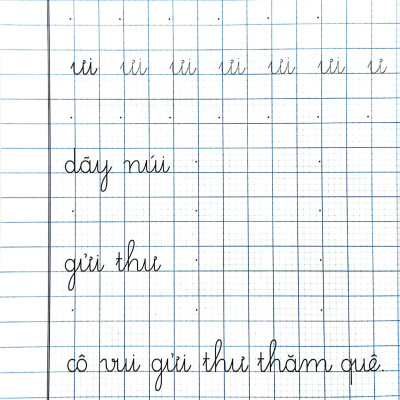 ưi ưi ưi ưi ưi ưi ư
dãy núi
gửi thư
cô vui gửi thư thăm quê.